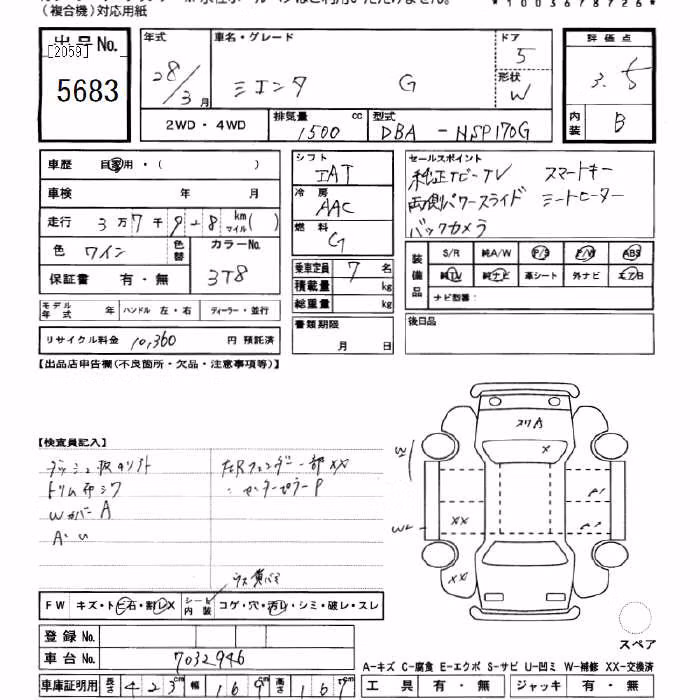 (複合機)対応用紙
*1003678726*
出品No. [2059]
5683
年式 28/3月
車名・グレード シエンタ G
ドア 5
形状 W
評価点 3.5
内装 B
2WD・4WD
排気量 1500 cc
型式 DBA - NSP170G
車歴 自家用・( )
車検 年 月
走行 3万7千928 km マイル( )
色 ワイン 色替
カラーNo. 3T8
保証書 有・無
シフト IAT
冷房 AAC
燃料 G
乗車定員 7 名
積載量 kg
総重量 kg
書類期限 月 日
セールスポイント
純正ナビ-TV スマートキー
両側パワースライド シートヒーター
バックカメラ
装備品 S/R 純A/W P/S P/W ABS
純TV 純ナビ 革シート 外ナビ エアB
ナビ型番:
後日品
モデル年式 年 ハンドル 左・右 ディーラー・並行
リサイクル料金 10,360 円 預託済
【出品店申告欄(不良箇所・欠品・注意事項等)】
【検査員記入】
トリム布シワ
Wカバー A
左Rフェンダー一部XX
センターピラー P
XX
XX
FW キズ・トビ石・割レX シール内装 コゲ・穴・汚レ・シミ・破レ・スレ
登録No.
車台No. 7032946
車庫証明用 長さ 423 幅 169 高さ 167
スペア
A-キズ C-腐食 E-エクボ S-サビ U-凹ミ W-補修 XX-交換済
工具 有・無 ジャッキ 有・無